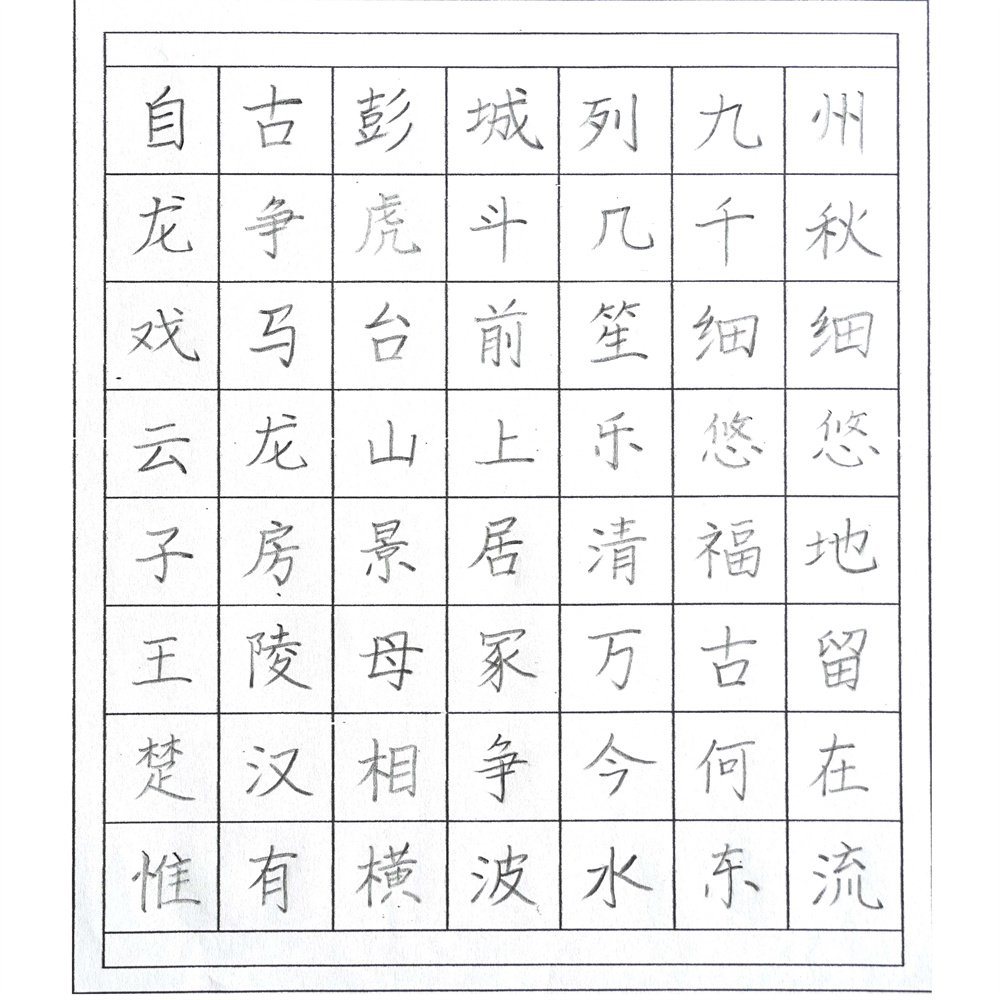 自古彭城列九州
龙争虎斗几千秋
戏马台前笙细细
云龙山上乐悠悠
子房景居清福地
王陵母冢万古留
楚汉相争今何在
惟有横波水东流